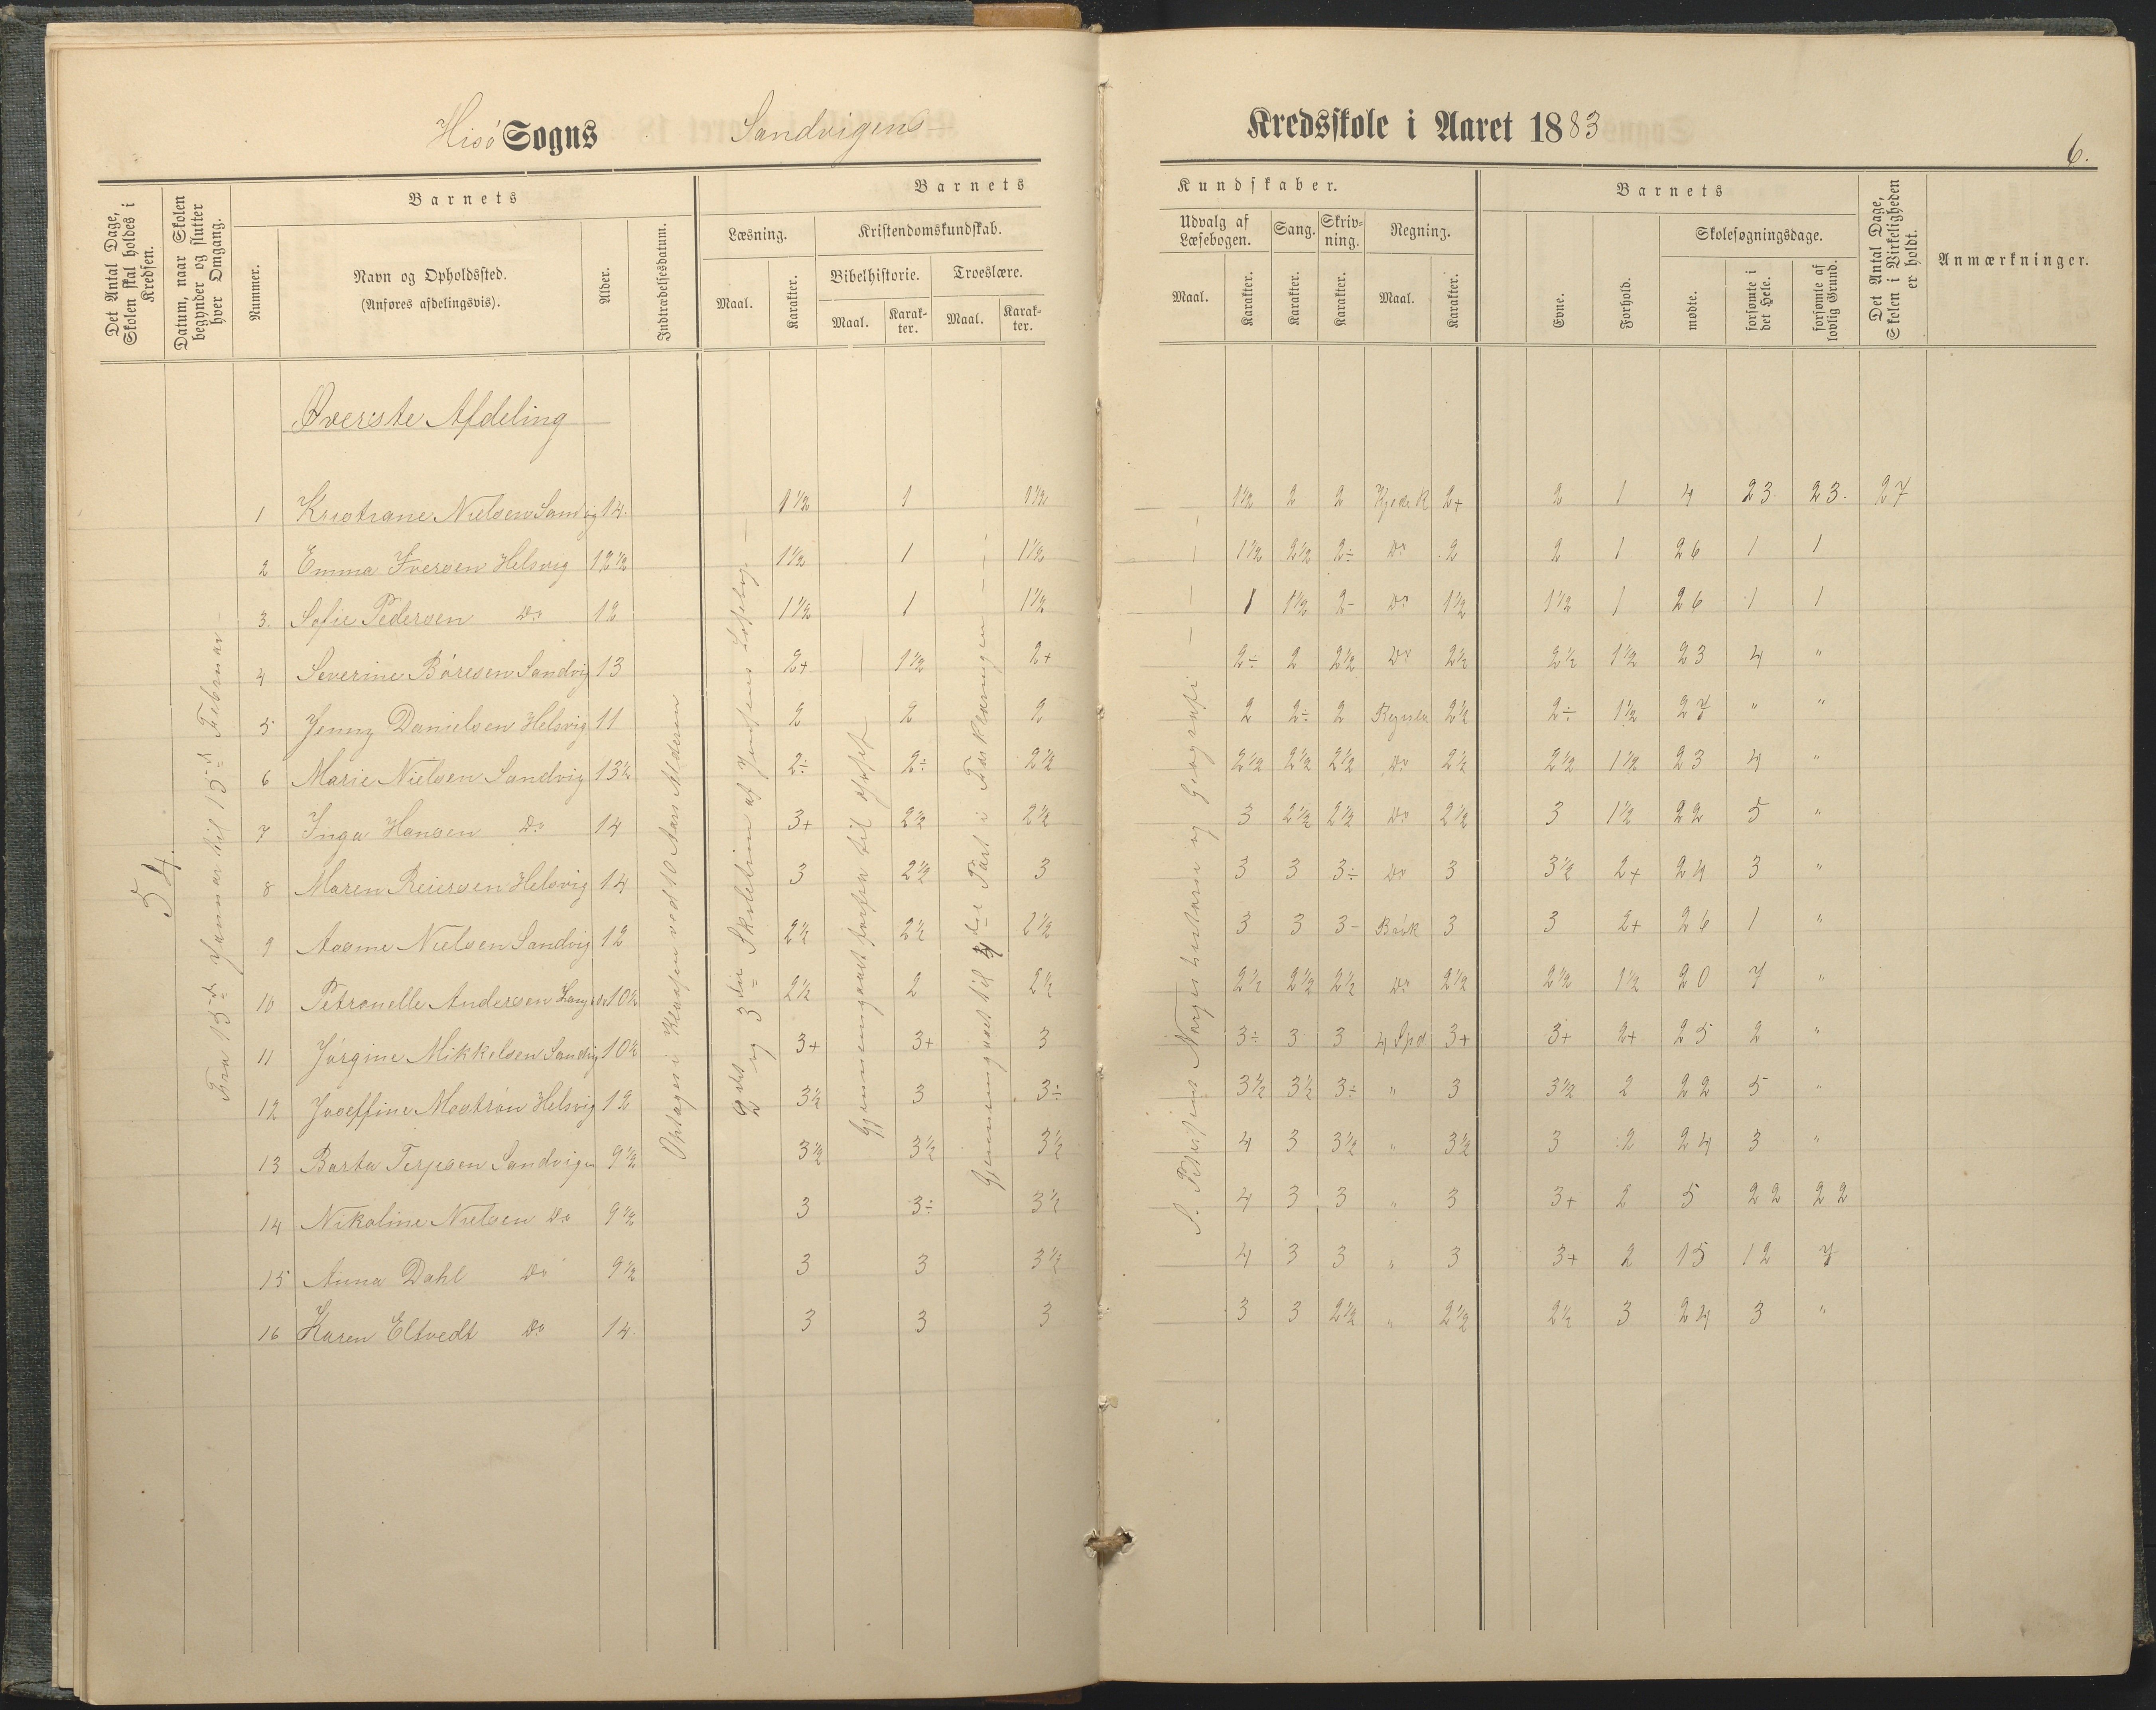 Hisö Sogns Sandvigens Kredsskole i Aaret 1883
6.
Det Antal Dage, Skolen skal holdes i Kredsen.
Datum, naar Skolen begynder og slutter hver Omgang.
Barnets
Nummer.
Navn og Opholdssted.
(Anføres afdelingsvis).
Alder.
Indtrædelsesdatum.
Barnets Kundskaber.
Læsning.
Maal.
Karakter.
Kristendomskundskab.
Bibelhistorie.
Maal.
Karak-
ter.
Troeslære.
Maal.
Karak-
ter.
Udvalg af
Læsebogen.
Maal.
Karakter.
Sang.
Karakter.
Skriv-
ning.
Karakter.
Regning.
Maal.
Karakter.
Barnets
Evne.
Forhold.
Skolesøgningsdage.
mødte.
forsømte i
det Hele.
forsømte af
lovlig Grund.
Det Antal Dage,
Skolen i Virkeligheden
er holdt.
Anmærkninger.
Øverste Afdeling
54.
Fra 15de Januar til 15de Februar
Optages i Klassen ved 10 Aars Alderen
2det og 3die Skoletrin af Jensens Læsebog
Gjennemgaaet forfra til
Gjennemgaaet til 4de Part i Forklaringen
S. Petersens Norgeshistorie og Geografi
1 Kristiane Nielsen Sandvig 14. 1½ 1 1½ 1½ 2 2 2+ 2 1 4 23. 23. 27
2 Emma Iversen Helsvig 12½ 1½ 1 1½ 1½ 2½ 2÷ Do 2 2 1 26 1 1
3. Sofie Pedersen Do 12 1½ 1 1½ 1 1½ 2- Do 1½ 1½ 1 26 1 1
4 Severine Böresen Sandvig 13 2+ 1½ 2+ 2÷ 2 2½ Do 2½ 2½ 1½ 23 4 "
5 Jenny Danielsen Helsvig 11 2 2 2 2 2÷ 2 2½ 2÷ 1½ 27 " "
6 Marie Nielsen Sandvig 13½ 2÷ 2÷ 2½ 2½ 2½ 2½ Do 2½ 2½ 1½ 23 4 "
7 Inga Hansen Do 14 3+ 2½ 2½ 3 2½ 2½ Do 2½ 3 1½ 22 5 "
8 Maren Reiersen Helsvig 14 3 2½ 3 3 3 3÷ Do 3 3½ 2+ 24 3 "
9 Aasme Nielsen Sandvig 12 2½ 2½ 2½ 3 3 3- Brök 3 3 2+ 26 1 "
10 Petronelle Andersen 10½ 2½ 2 2½ 2½ 2½ 2½ Do 2½ 2½ 1½ 20 7 "
11 Jörgine Mikkelsen Sandvig 10½ 3+ 3+ 3 3÷ 3 3 4 Spd 3+ 3+ 2+ 25 2 "
12 Joseffine Moströn Helsvig 12 3½ 3 3÷ 3½ 3½ 3÷ " 3 3½ 2 22 5 "
13 Barta Terjesen Sandvigen 9½ 3½ 3½ 3½ 4 3 3½ " 3½ 3 2 24 3 "
14 Nikoline Nielsen Do 9½ 3 3÷ 3½ 4 3 3 " 3 3+ 2 5 22 22
15 Anna Dahl Do 9½ 3 3 3½ 4 3 3 " 3 3+ 2 15 12 7
16 Karen Eltvedt Do 14. 3 3 3 3 3 2½ " 2½ 2½ 3 24 3 "